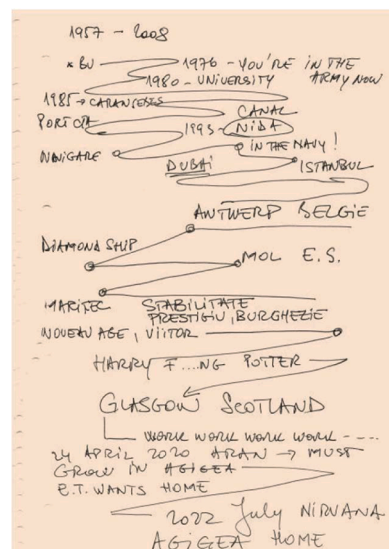 1957 - 2008
* BU 1976 - YOU'RE IN THE
1980 - UNIVERSITY ARMY NOW
1985 → CARANSEBES
CANAL
PORT CTA 1993 - NIDA
IN THE NAVY!
NAVIGARE
DUBAI ISTANBUL
ANTWERP BELGIE
DIAMOND SHIP
MOL E.S.
MARITEC STABILITATE
PRESTIGIU, BURGHEZIE
NOUVEAU AGE, VIITOR
HARRY F....NG POTTER
GLASGOW SCOTLAND
WORK WORK WORK WORK - - - -
24 APRIL 2020 ARAN → MUST
GROW IN AGIGEA
E.T. WANTS HOME
2022 July NIRVANA
AGIGEA HOME